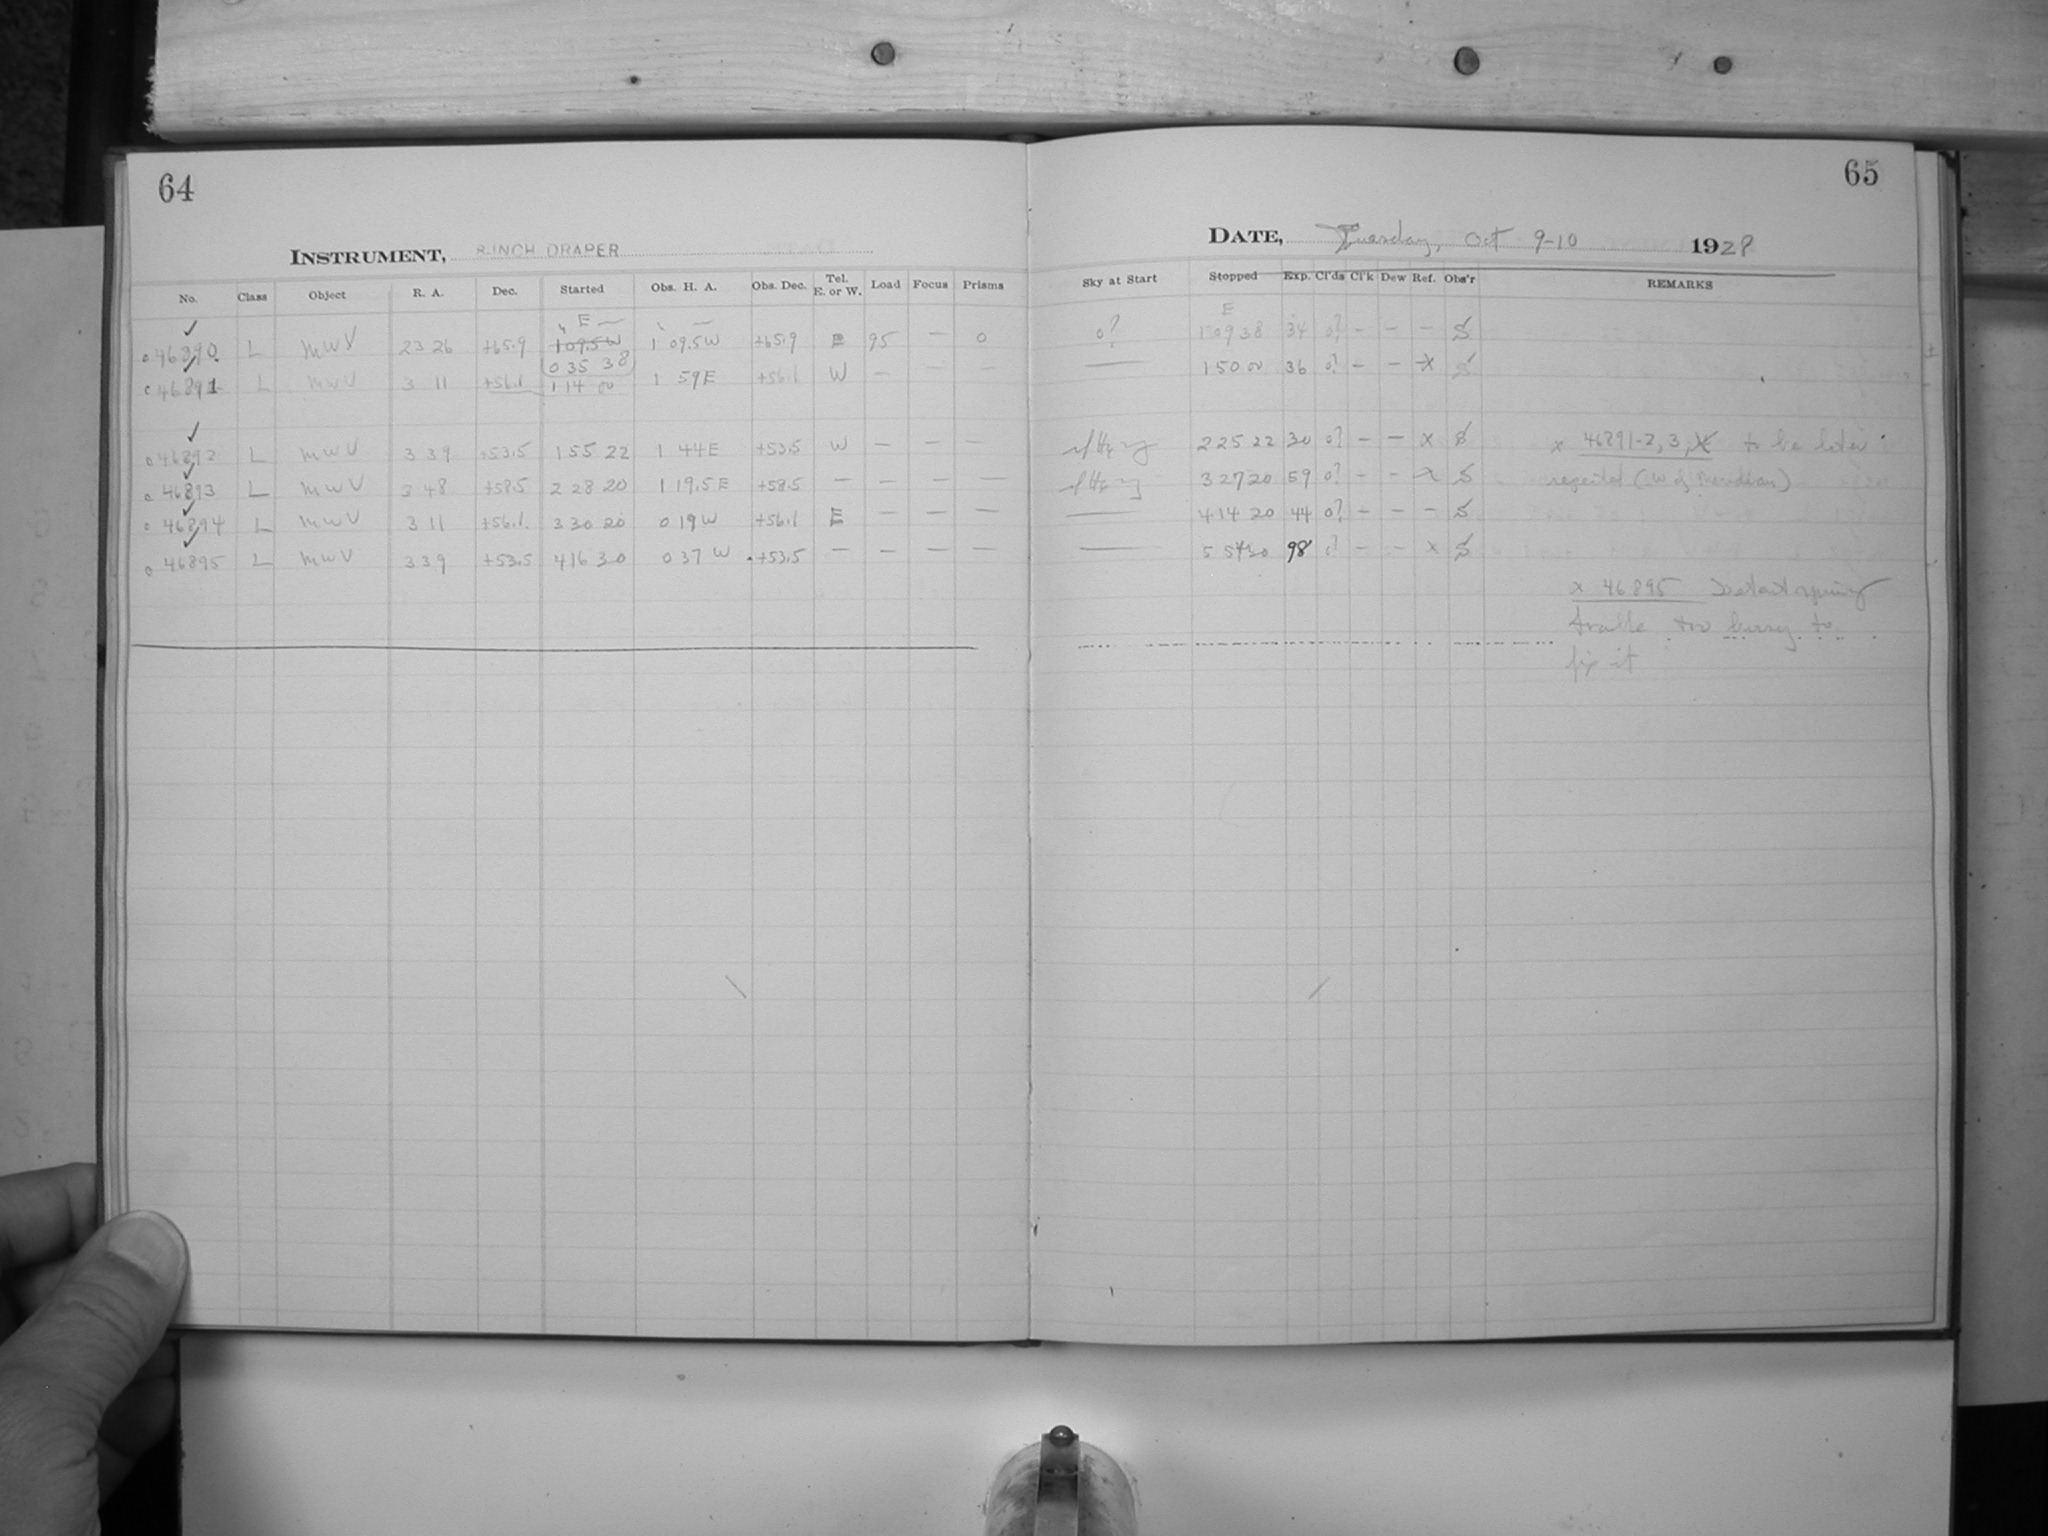 64
65
INSTRUMENT, 8-INCH DRAPER
DATE, Tuesday, Oct 9-10 1928
No. Class Object R. A. Dec. Started Obs. H. A. Obs. Dec. Tel. E. or W. Load Focus Prisms Sky at Start Stopped Exp. Cl'ds Cl'k Dew Ref. Obs'r REMARKS
E E
46890 L MWV 23 26 +65.9 1 09.5 W 1 09.5 W +65.9 E 95 — 0 0? 1 09 38 34 0? – – – S
0 35 38
46891 L MWV 3 11 +56.1 1 14 00 1 59 E +56.1 W — — — — 1 50 00 36 0? – – x S
46892 L MWV 3 39 +53.5 1 55 22 1 44 E +53.5 W — — — 2 25 22 30 0? – – x S x 46891-2, 3, to be later
46893 L MWV 3 48 +58.5 2 28 20 1 19.5 E +58.5 — — — — 3 27 20 59 0? – – x S repeated (W of Meridian)
46894 L MWV 3 11 +56.1 3 30 20 0 19 W +56.1 E — — — — 4 14 20 44 0? – – – S
46895 L MWV 3 39 +53.5 4 16 30 0 37 W +53.5 — — — — — 5 54 30 98 0? – – x S
x 46895
trouble too to
fix it